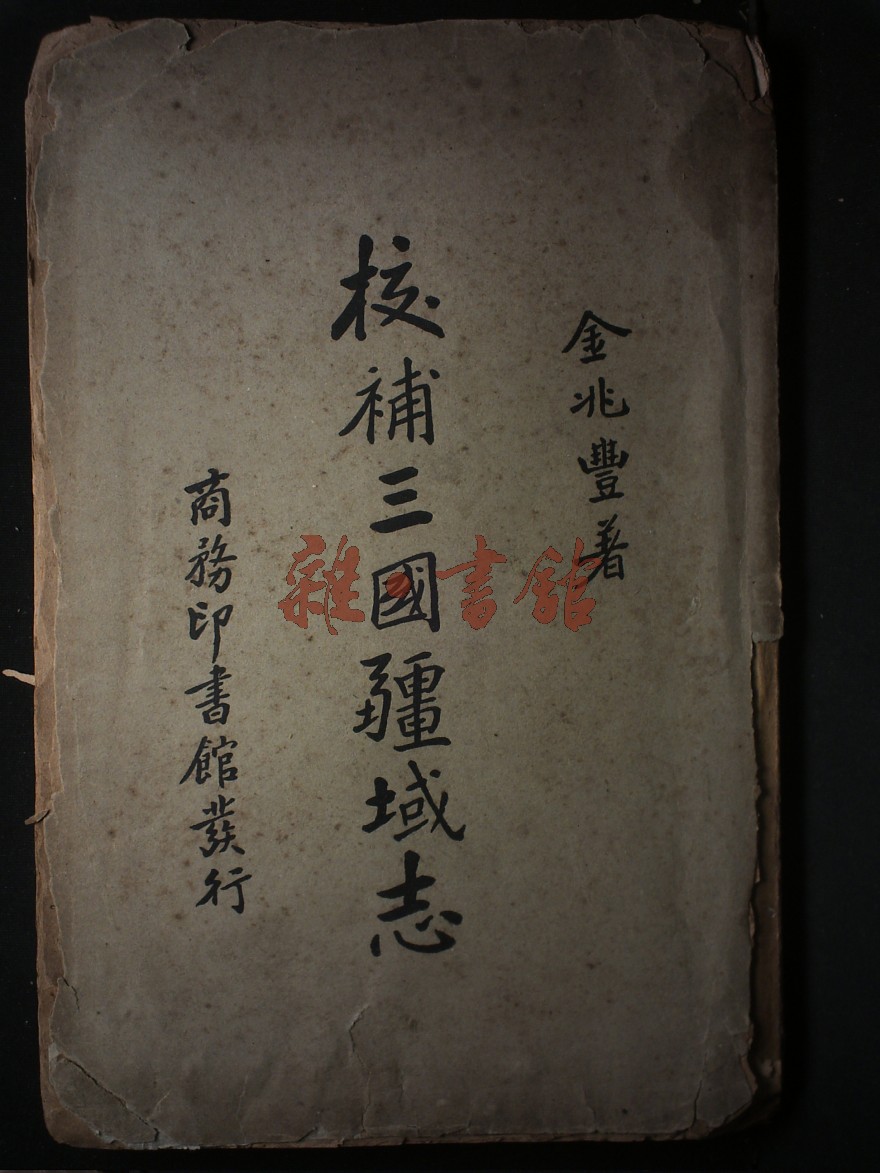 金兆豐著
校補三國疆域志
商務印書館發行
雜·書館